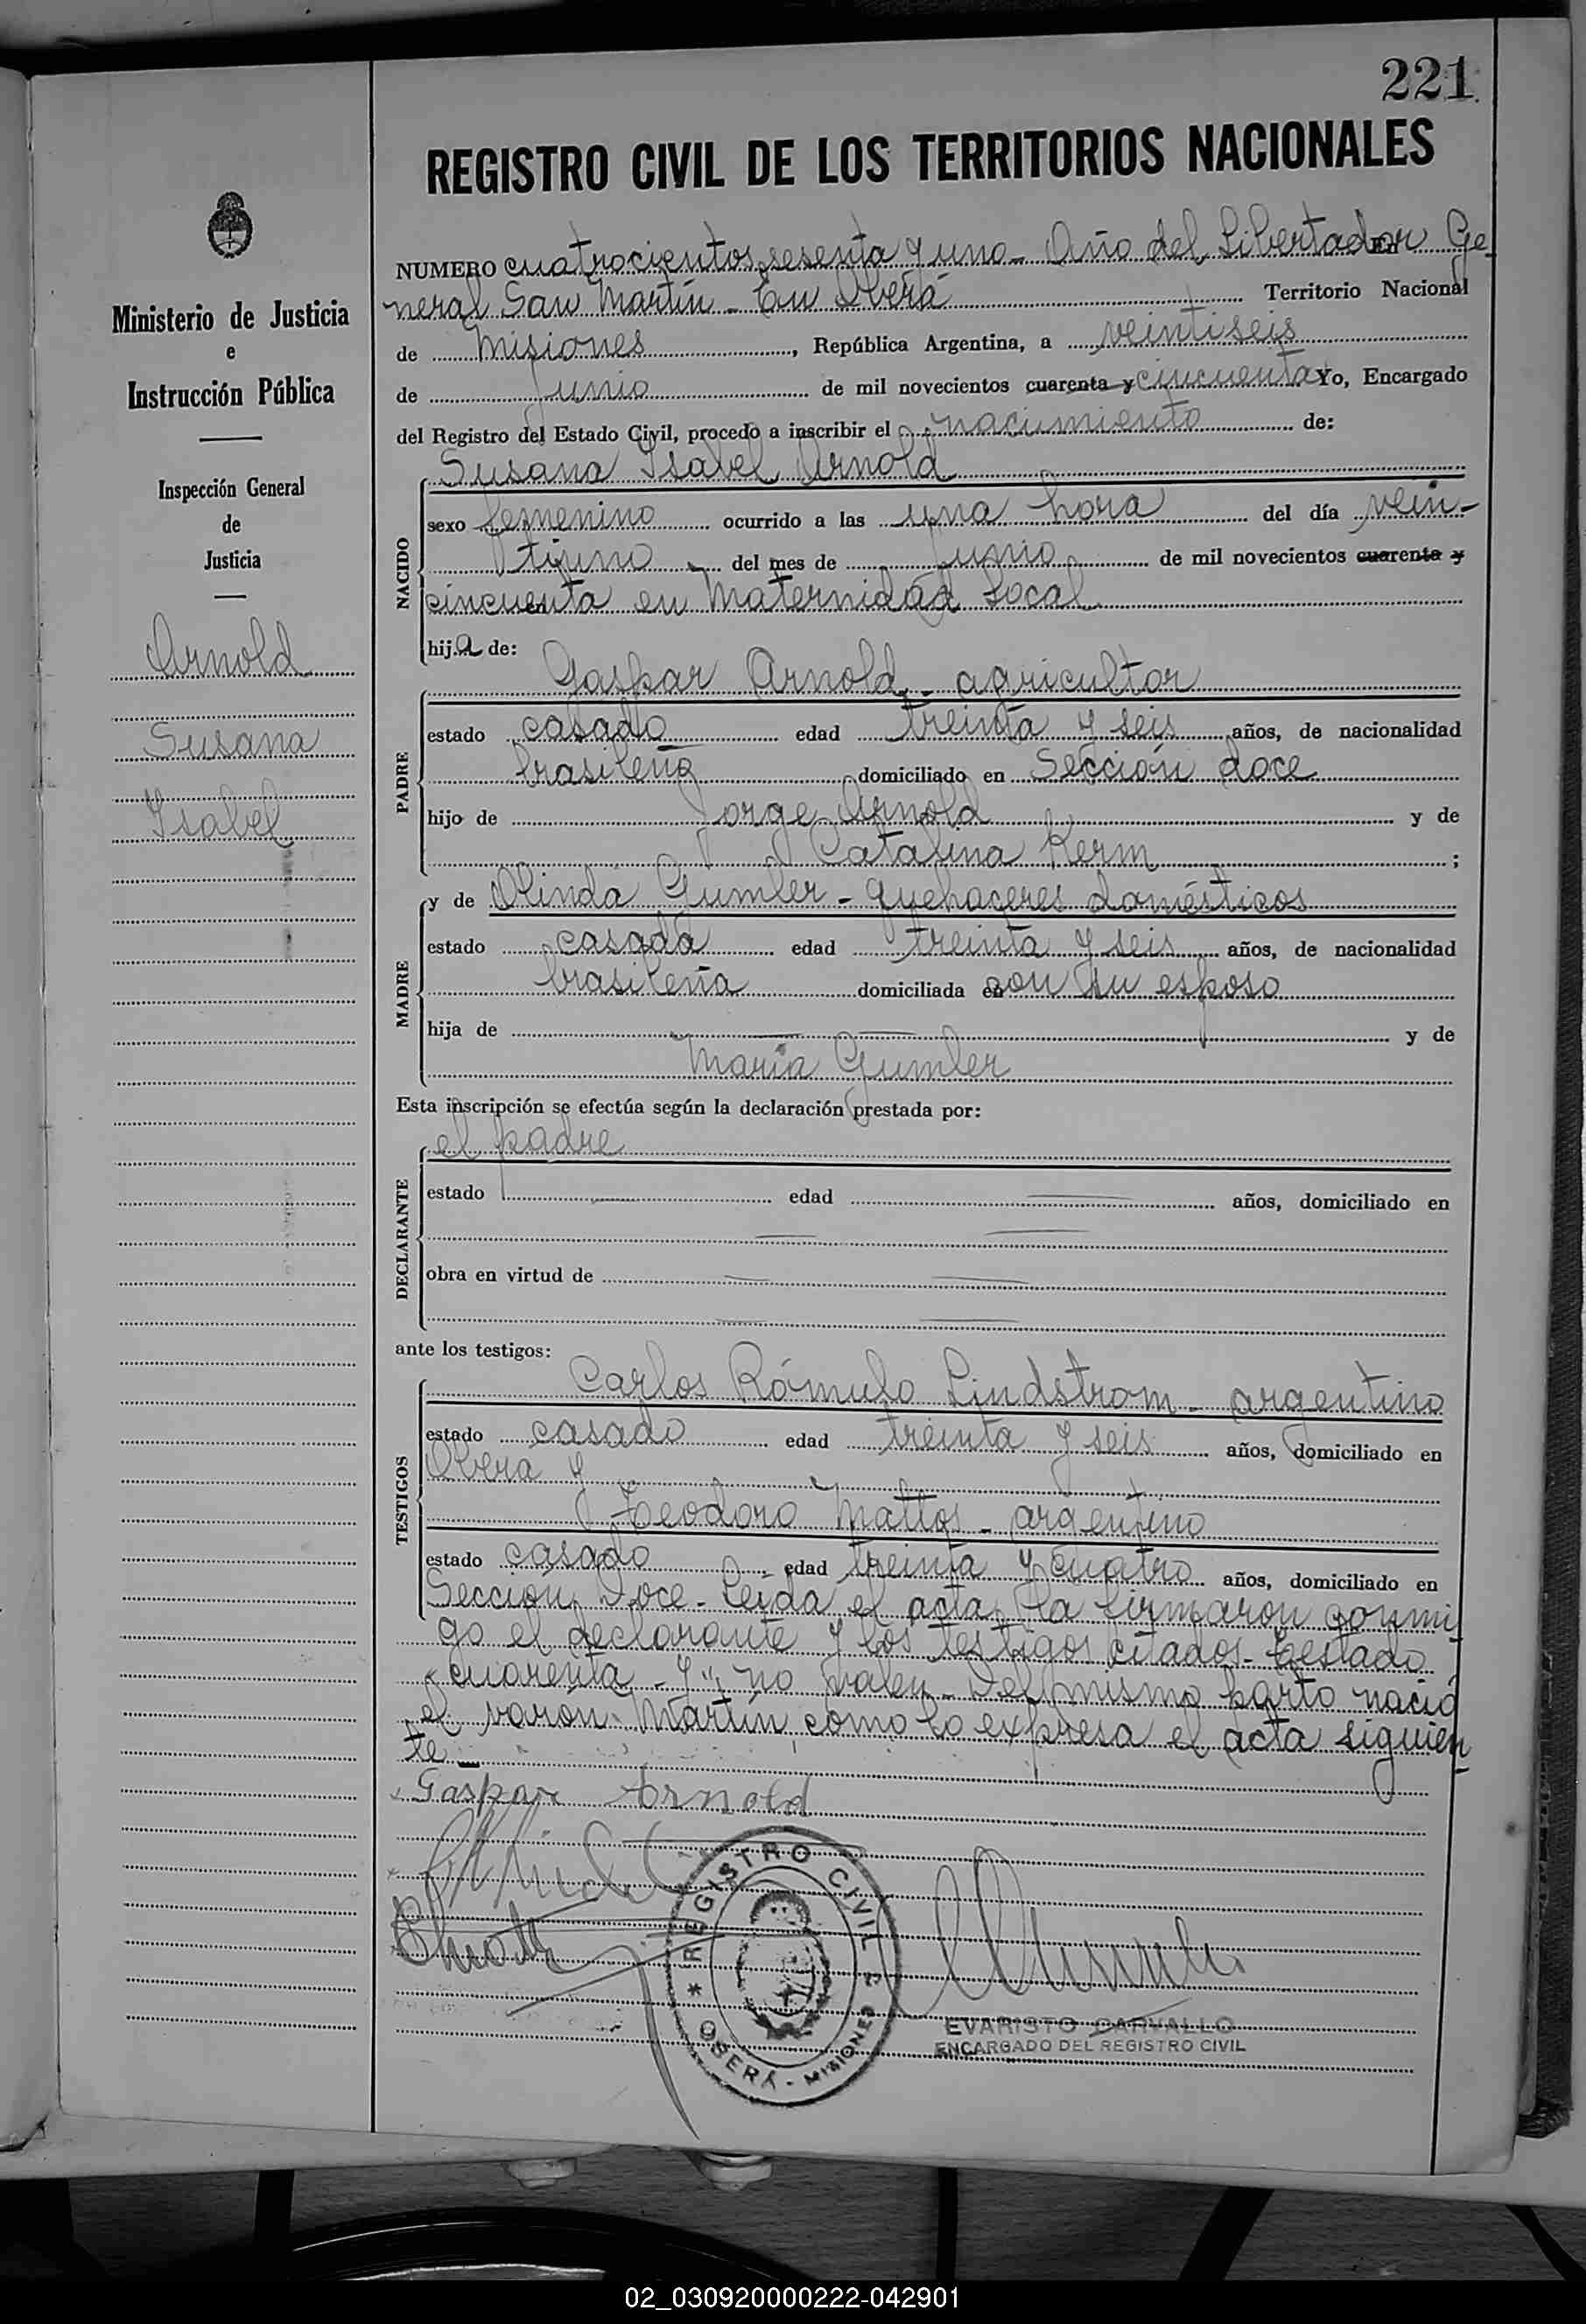 221
REGISTRO CIVIL DE LOS TERRITORIOS NACIONALES
NUMERO cuatrocientos sesenta y uno - Año del Libertador Ge-
neral San Martín - En Oberá Territorio Nacional
de Misiones, República Argentina, a veintiseis
de junio de mil novecientos cuarenta y cincuenta Yo, Encargado
del Registro del Estado Civil, procedo a inscribir el nacimiento de:
Susana Isabel Arnold
NACIDO
sexo femenino ocurrido a las una hora del día vein-
tiuno del mes de junio de mil novecientos cuarenta y
cincuenta en Maternidad Local
hija de:
Gaspar Arnold - agricultor
PADRE
estado casado edad treinta y seis años, de nacionalidad
brasileña domiciliado en Sección doce
hijo de Jorge Arnold y de
Catalina Kerm;
y de Olinda Gumler - quehaceres domésticos
MADRE
estado casada edad treinta y seis años, de nacionalidad
brasileña domiciliada en con su esposo
hija de y de
María Gumler
Esta inscripción se efectúa según la declaración prestada por:
el padre
DECLARANTE
estado edad años, domiciliado en
obra en virtud de
ante los testigos:
Carlos Rómulo Lindstrom - argentino
TESTIGOS
estado casado edad treinta y seis años, domiciliado en
Oberá y
Teodoro Mattos - argentino
estado casado edad treinta y cuatro años, domiciliado en
Sección Doce - Leída el acta, la firmaron conmi-
go el declarante y los testigos citados - Testado
"cuarenta - y" no valen - Del mismo parto nació
el varón Martín como lo expresa el acta siguien-
te -
Gaspar Arnold
REGISTRO CIVIL
OBERÁ - MISIONES
EVARISTO CARVALLO
ENCARGADO DEL REGISTRO CIVIL
Ministerio de Justicia
e
Instrucción Pública
Inspección General
de
Justicia
Arnold
Susana
Isabel
02_030920000222-042901